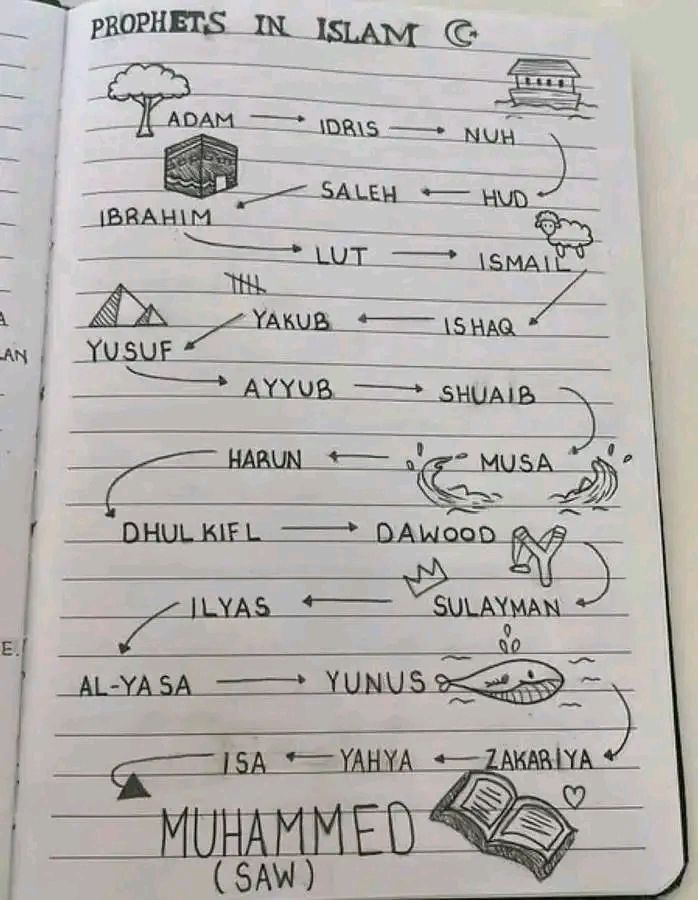 PROPHETS IN ISLAM
ADAM → IDRIS → NUH
SALEH ← HUD
IBRAHIM
LUT → ISMAIL
YAKUB ← ISHAQ
YUSUF
AYYUB → SHUAIB
HARUN ← MUSA
DHULKIFL → DAWOOD
ILYAS ← SULAYMAN
AL-YASA → YUNUS
ISA ← YAHYA ← ZAKARIYA
MUHAMMED
(SAW)
A
LAN
E.